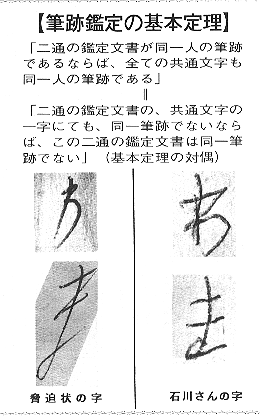 【筆跡鑑定の基本定理】
「二通の鑑定文書が同一人の筆跡
であるならば、全ての共通文字も
同一人の筆跡である」
‖
「二通の鑑定文書の、共通文字の
一字にても、同一筆跡でないなら
ば、この二通の鑑定文書は同一筆
跡でない」（基本定理の対偶）
脅迫状の字
石川さんの字